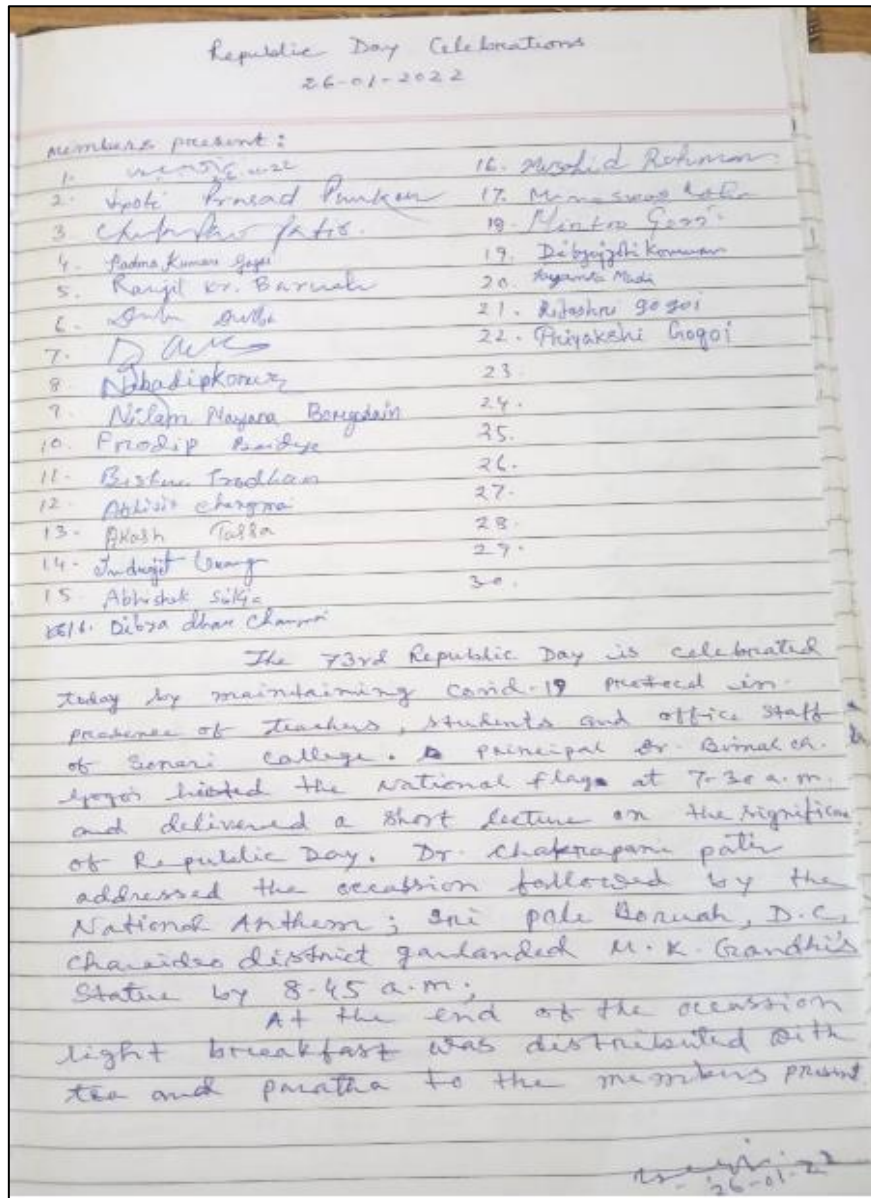 Republic Day Celebrations
26-01-2022
members present:
1.
2. Jyoti Prasad Phukan
3
4. Padma Kumar Gogoi
5. Ranjit Kr. Baruah
6.
7.
8 Nabadip Konwar
9. Nilam Nayana Borgohain
10. Prodip
11. Bishnu Pradhan
12. Abhijit
13. Akash
14. Indrajit
15. Abhishek
16. Dibya dhar
16. Rahman
17.
18.
19. Dibyajyoti Konwar
20.
21. Ritashri gogoi
22. Priyakshi Gogoi
23.
24.
25.
26.
27.
28.
29.
30.
The 73rd Republic Day is celebrated
today by maintaining covid-19 protocol in
presence of teachers, students and office staff
of Sonari College. principal Dr. Bimal ch.
Gogoi histed the National flag at 7-30 a.m.
and delivered a short lecture on the significan
of Republic Day. Dr. Chakrapani patir
addressed the occassion followed by the
National Anthem; Sri Boruah, D.C,
Charaideo district garlanded M. K. Gandhi's
Statue by 8-45 a.m;
At the end of the occassion
light breakfast was distributed with
tea and paratha to the members present
26-01-22